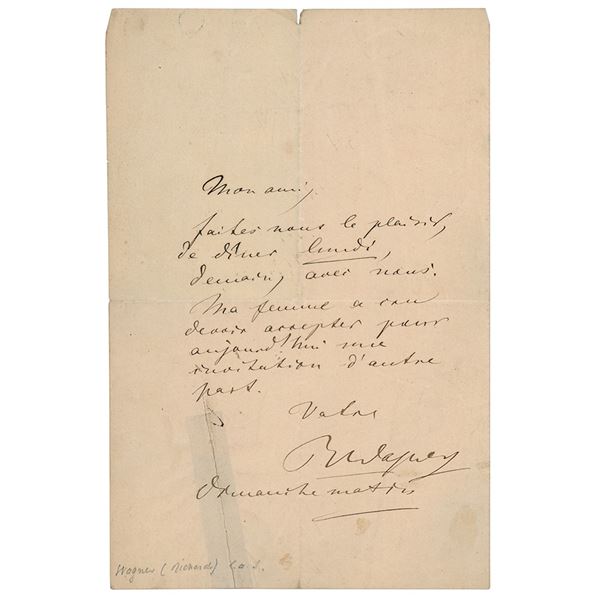 Mon ami,
faites nous le plaisir,
de dîner lundi,
demain, avec nous.
Ma femme a cru
devoir accepter pour
aujourd'hui une
invitation d'autre
part.
Votre
RWagner
dimanche matin
Wagner (Richard) L. a. s.